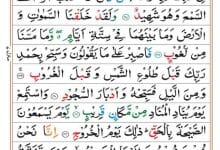 السَّمْعَ وَهُوَ شَهِيْدٌ ۝ وَلَقَدْ خَلَقْنَا السَّمٰوٰتِ وَ
الْاَرْضَ وَمَا بَيْنَهُمَا فِيْ سِتَّةِ اَيَّامٍ ۖ وَّمَا مَسَّنَا
مِنْ لُّغُوْبٍ ۝ فَاصْبِرْ عَلٰى مَا يَقُوْلُوْنَ وَسَبِّحْ بِحَمْدِ
رَبِّكَ قَبْلَ طُلُوْعِ الشَّمْسِ وَقَبْلَ الْغُرُوْبِ ۝
وَمِنَ الَّيْلِ فَسَبِّحْهُ وَاَدْبَارَ السُّجُوْدِ ۝ وَاسْتَمِعْ
يَوْمَ يُنَادِ الْمُنَادِ مِنْ مَّكَانٍ قَرِيْبٍ ۝ يَّوْمَ يَسْمَعُوْنَ
الصَّيْحَةَ بِالْحَقِّ ؕ ذٰلِكَ يَوْمُ الْخُرُوْجِ ۝ اِنَّا نَحْنُ